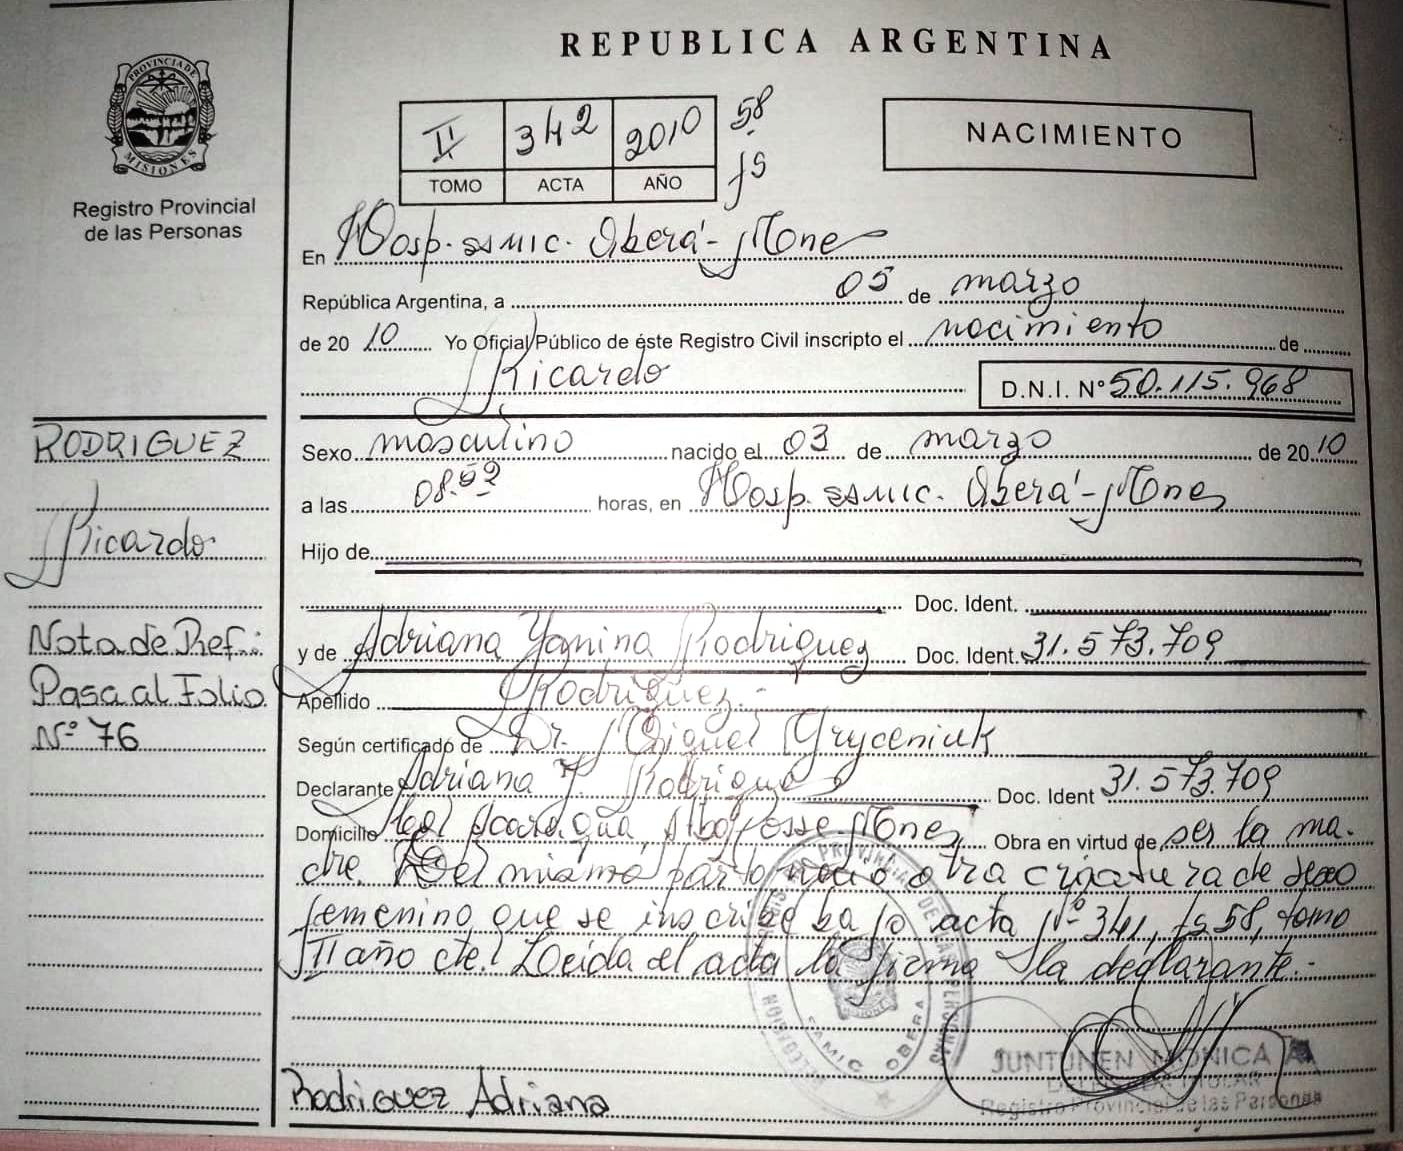 REPUBLICA ARGENTINA
PROVINCIA DE MISIONES
Registro Provincial
de las Personas
II 342 2010 58
TOMO ACTA AÑO fs
NACIMIENTO
En Hosp. SAMIC. Oberá - Mnes
República Argentina, a 05 de marzo
de 2010 Yo Oficial Público de éste Registro Civil inscripto el nacimiento de
Ricardo D.N.I. Nº 50.115.968
RODRIGUEZ
Ricardo
Nota de Ref.:
Pasa al Folio
Nº 76
Sexo masculino nacido el 03 de marzo de 2010
a las horas, en Hosp. SAMIC. Oberá - Mnes
Hijo de
Doc. Ident.
y de Adriana Yanina Rodriguez Doc. Ident. 31.573.709
Apellido Rodriguez.-
Según certificado de Dr. Miguel Gryceniuk
Declarante Adriana Y. Rodriguez Doc. Ident 31.573.709
Domicilio Alba Posse - Mnes Obra en virtud de ser la ma-
dre. Del mismo parto nació otra criatura de sexo
femenino que se inscribe bajo acta Nº 341, fs 58, tomo
II año cte. Leida el acta la firma la declarante.-
REGISTRO PROVINCIAL DE LAS PERSONAS
MISIONES
DELEGACION
SAMIC OBERA
JUNTUNEN MONICA A
DELEGADA TITULAR
Registro Provincial de las Personas
Rodriguez Adriana